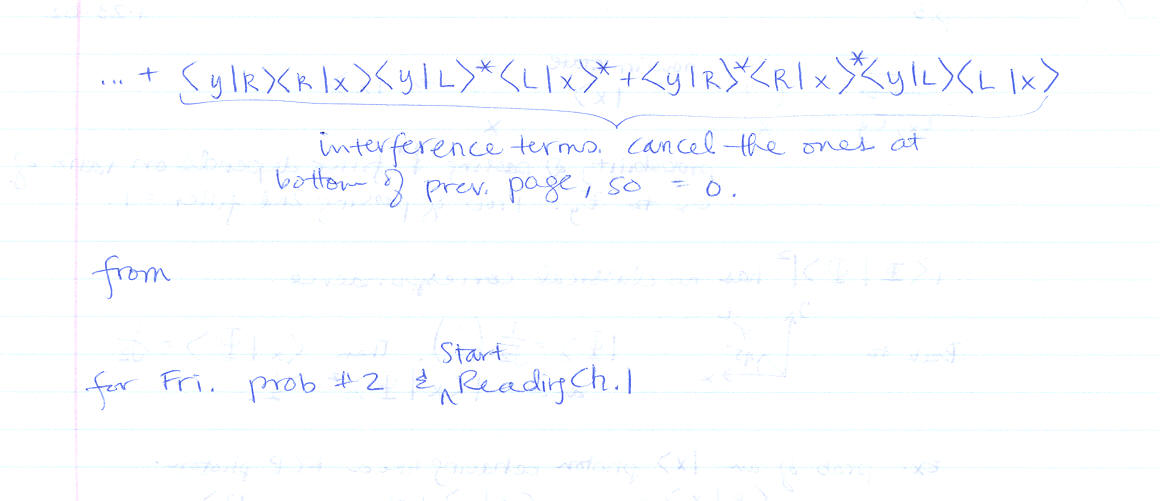 ... + <y|R><R|x><y|L>*<L|x>* + <y|R>*<R|x>*<y|L><L|x>
interference terms. cancel the ones at
bottom of prev. page, so = 0.
from
Start
for Fri. prob #2 & ^ Reading Ch. 1